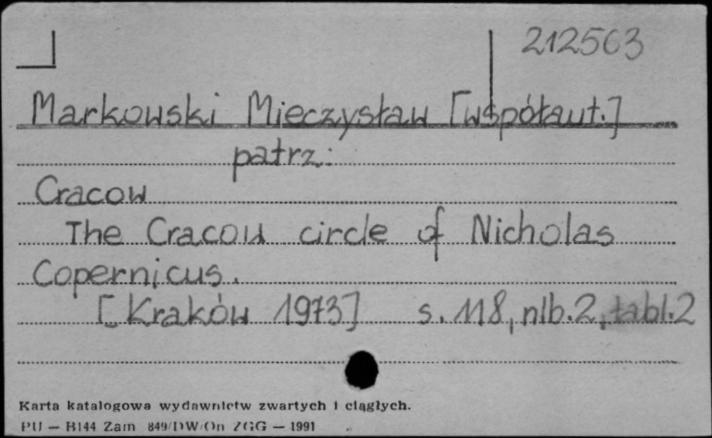 212563
Markowski Mieczysław [współaut.]
patrz:
Cracow
The Cracow circle of Nicholas
Copernicus.
[Kraków 1973] s. 118, nlb. 2, tabl. 2
Karta katalogowa wydawnictw zwartych i ciągłych.
PU — H144 Zam 849/DW/On ZGG — 1991